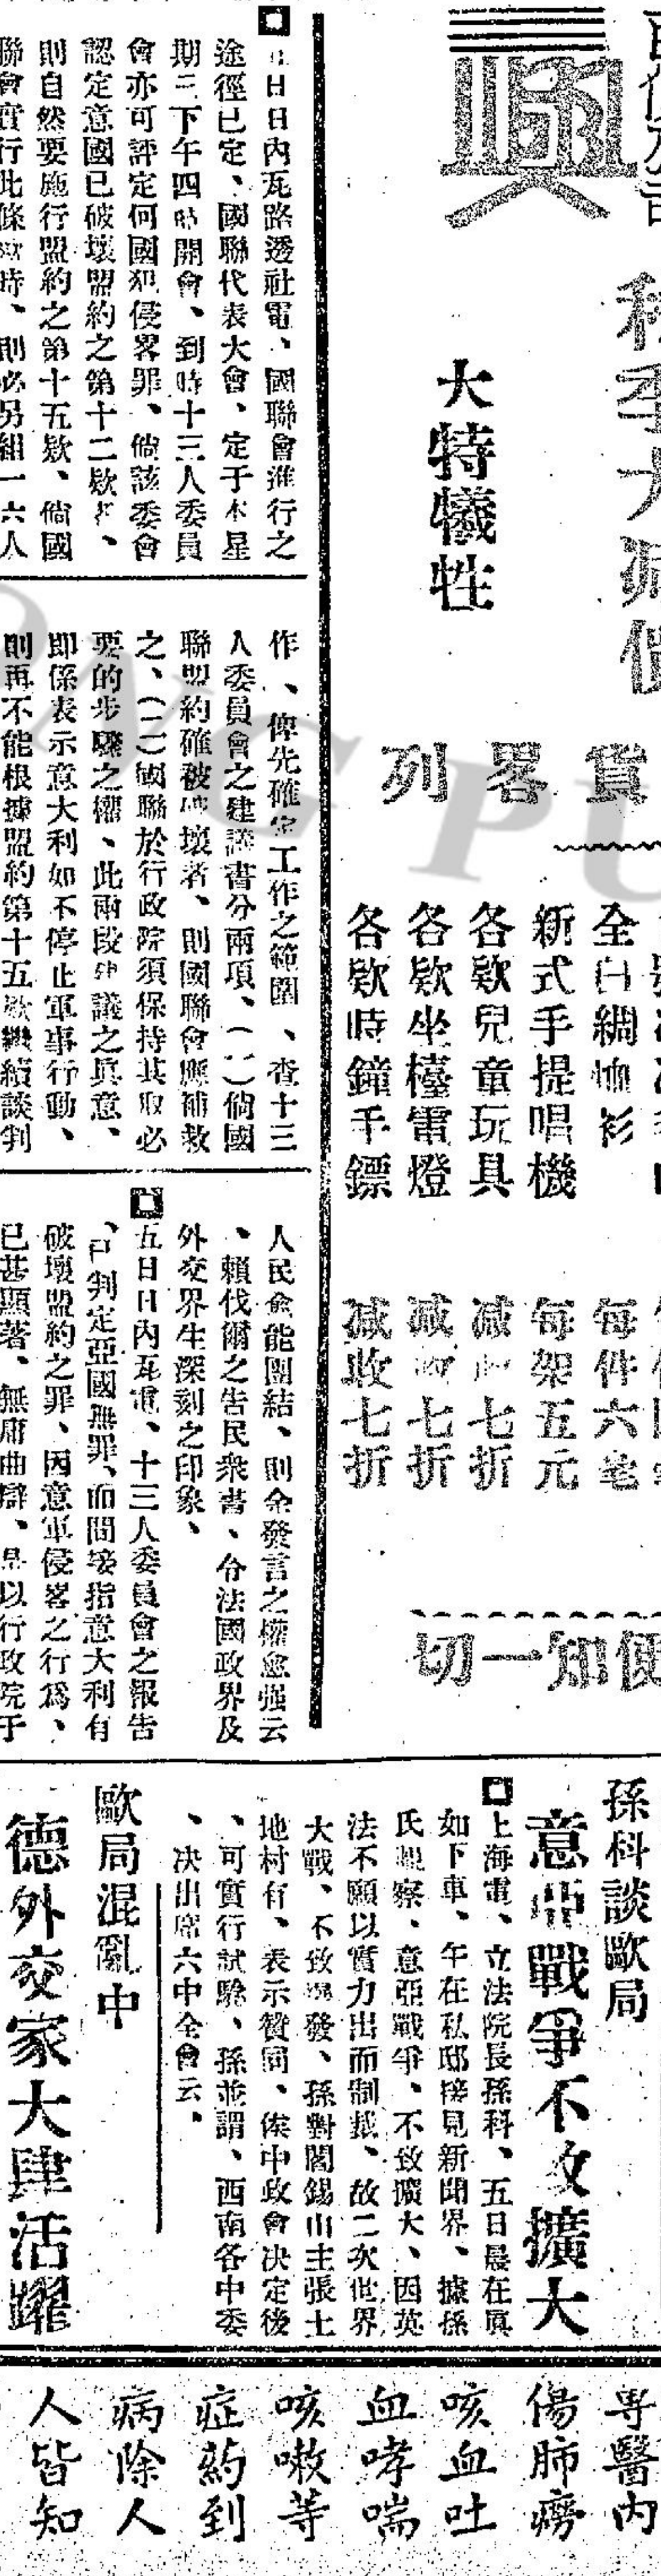 興
大特犧牲
貨畧列
全白綢恤衫
每件六毫
新式手提唱機
每架五元
各欵兒童玩具
減收七折
各欵坐檯電燈
減收七折
各欵時鐘手鏢
減收七折
便知一切
五日日內瓦路透社電、國聯會進行之
途徑已定、國聯代表大會、定于本星
期三下午四時開會、到時十三人委員
會亦可評定何國犯侵畧罪、倘該委會
認定意國已破壞盟約之第十二欵者、
則自然要施行盟約之第十五欵、倘國
聯會實行此條欵時、則必另組一六人
作、俾先確定工作之範圍、查十三
人委員會之建議書分兩項、(一)倘國
聯盟約確被破壞者、則國聯會應補救
之、(二)國聯於行政院須保持其取必
要的步驟之權、此兩段建議之真意、
即係表示意大利如不停止軍事行動、
則再不能根據盟約第十五欵繼續談判
人民愈能團結、則余發言之權愈强云
、賴伐爾之告民衆書、令法國政界及
外交界生深刻之印象、
五日日內瓦電、十三人委員會之報告
、已判定亞國無罪、而間接指意大利有
破壞盟約之罪、因意軍侵畧之行爲、
已甚顯著、無庸曲辯、是以行政院于
孫科談歐局
意亞戰爭不致擴大
上海電、立法院長孫科、五日晨在眞
如下車、午在私邸接見新聞界、據孫
氏觀察、意亞戰爭、不致擴大、因英
法不願以實力出而制裁、故二次世界
大戰、不致爆發、孫對閻錫山主張土
地村有、表示贊同、俟中政會決定後
、可實行試驗、孫並謂、西南各中委
、決出席六中全會云。
歐局混亂中
德外交家大肆活躍
專醫內
傷肺癆
咳血吐
血哮喘
咳嗽等
症葯到
病除人
人皆知